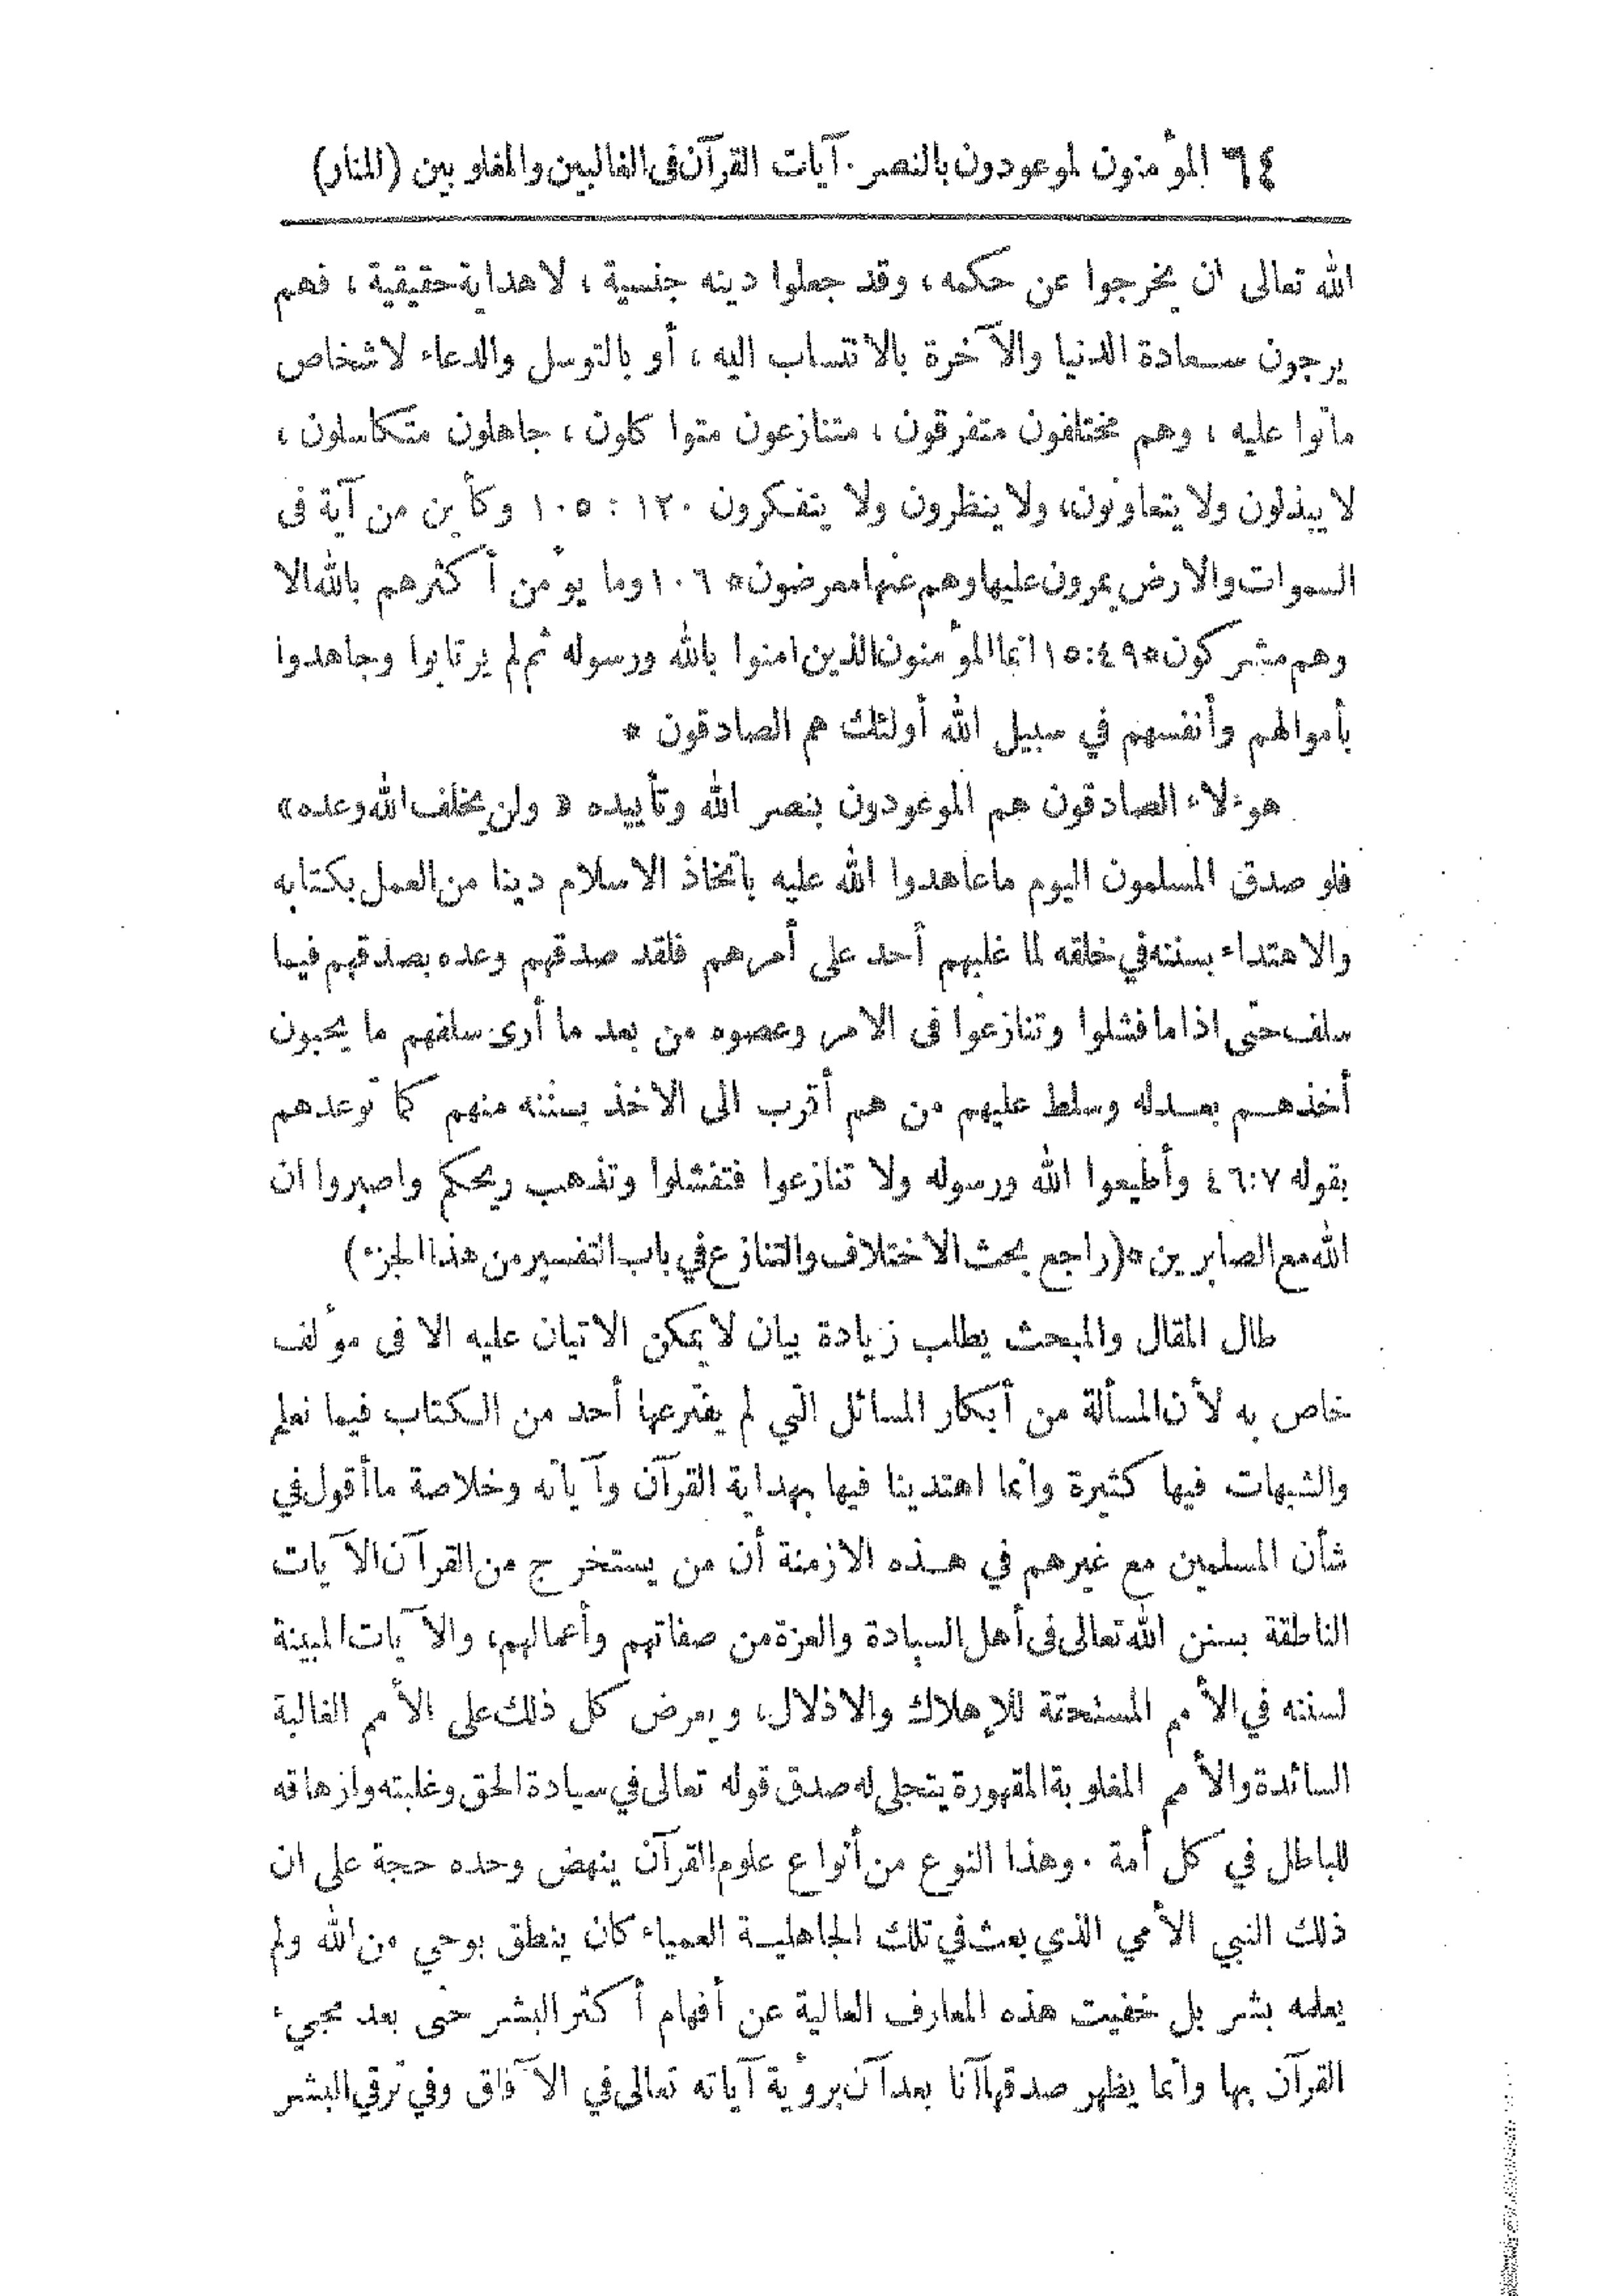 ٦٤ المؤمنون لموعودون بالنصر . آيات القرآن فى الغالبين والمغلوبين (المنار)
الله تعالى ان يخرجوا عن حكمه ، وقد جعلوا دينه جنسية ، لا هداية حقيقية ، فهم
يرجون سعادة الدنيا والآخرة بالانتساب اليه ، أو بالتوسل والدعاء لاشخاص
ماتوا عليه ، وهم مختلفون متفرقون ، متنازعون متوا كلون ، جاهلون متكاسلون ،
لا يبذلون ولا يتعاونون، ولا ينظرون ولا يتفكرون ١٢٠ : ١٠٥ وكأين من آية فى
السموات والارض يمرون عليها وهم عنها معرضون * ١٠٦ وما يؤمن أكثرهم بالله الا
وهم مشركون * ١٥:٤٩ انما المؤمنون الذين امنوا بالله ورسوله ثم لم يرتابوا وجاهدوا
بأموالهم وأنفسهم في سبيل الله أولئك هم الصادقون *
هؤلاء الصادقون هم الموعودون بنصر الله وتأييده « ولن يخلف الله وعده »
فلو صدق المسلمون اليوم ما عاهدوا الله عليه باتخاذ الاسلام دينا من العمل بكتابه
والاهتداء بسننه في خلقه لما غلبهم أحد على أمرهم فلقد صدقهم وعده بصدقهم فيما
سلف حتى اذا ما فشلوا وتنازعوا فى الامر وعصوه من بعد ما أرى سلفهم ما يحبون
أخذهم بعدله وسلط عليهم من هم أقرب الى الاخذ بسننه منهم كما توعدهم
بقوله ٤٦:٧ وأطيعوا الله ورسوله ولا تنازعوا فتفشلوا وتذهب ريحكم واصبروا ان
الله مع الصابرين * (راجع بحث الاختلاف والتنازع في باب التفسير من هذا الجزء)
طال المقال والمبحث يطلب زيادة بيان لا يمكن الاتيان عليه الا فى مؤلف
خاص به لأن المسألة من أبكار المسائل التي لم يفترعها أحد من الكتاب فيما نعلم
والشبهات فيها كثيرة وانما اهتدينا فيها بهداية القرآن وآياته وخلاصة ما أقول في
شأن المسلمين مع غيرهم في هذه الازمنة أن من يستخرج من القرآن الآيات
الناطقة بسنن الله تعالى فى أهل السيادة والعزة من صفاتهم وأعمالهم، والآيات المبينة
لسننه في الأمم المستحقة للإهلاك والاذلال، ويعرض كل ذلك على الأمم الغالبة
السائدة والأمم المغلوبة المقهورة يتجلى له صدق قوله تعالى في سيادة الحق وغلبته وازهاقه
للباطل في كل أمة . وهذا النوع من أنواع علوم القرآن ينهض وحده حجة على ان
ذلك النبي الأمي الذي بعث في تلك الجاهلية العمياء كان ينطق بوحي من الله ولم
يعلمه بشر بل خفيت هذه المعارف العالية عن أفهام أكثر البشر حتى بعد مجيء
القرآن بها وانما يظهر صدقها آنا بعد آن برؤية آياته تعالى في الآفاق وفي ترقي البشر